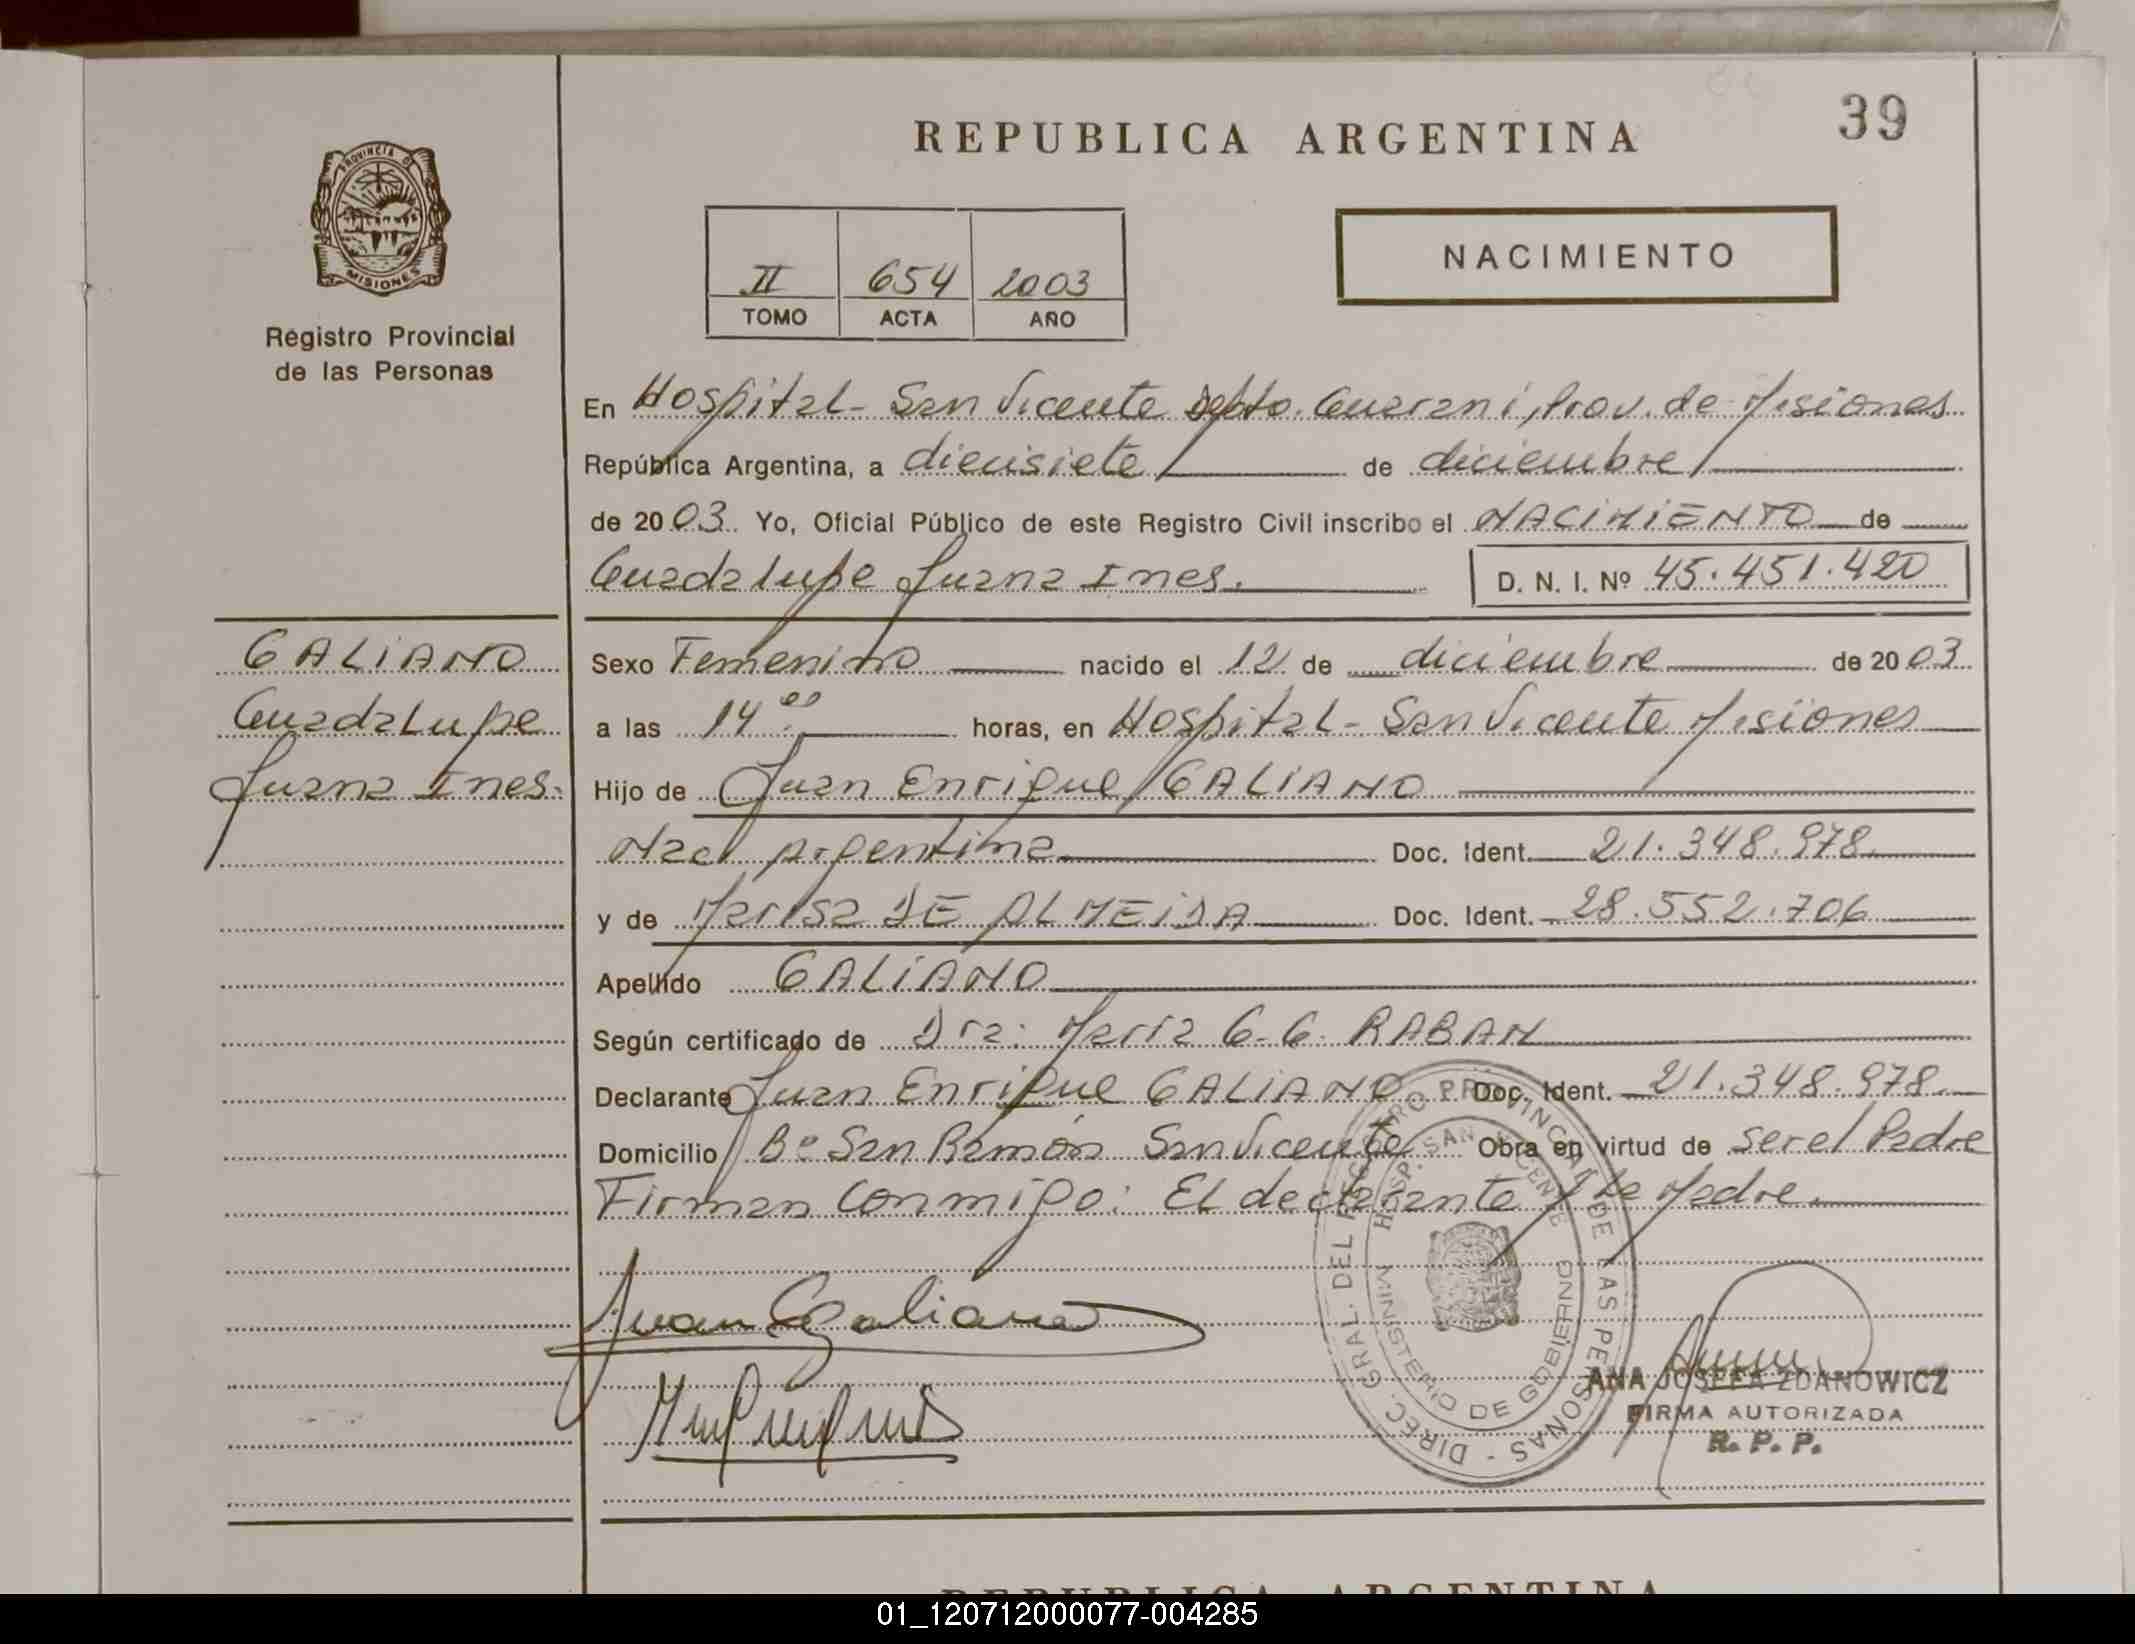 39
REPUBLICA ARGENTINA
PROVINCIA DE
MISIONES
Registro Provincial
de las Personas
II 654 2003
TOMO ACTA AÑO
NACIMIENTO
En Hospital - San Vicente Depto. Guarani, Prov. de Misiones
República Argentina, a diecisiete de diciembre
de 2003. Yo, Oficial Público de este Registro Civil inscribo el NACIMIENTO de
Guadalupe Juana Ines. D. N. I. Nº 45.451.420
GALIANO
Guadalupe
Juana Ines.
Sexo Femenino nacido el 12 de diciembre de 2003
a las 14 00 horas, en Hospital - San Vicente Misiones
Hijo de Juan Enrique GALIANO
Nac. Argentina Doc. Ident. 21.348.978.
y de Marisa DE ALMEIDA Doc. Ident. 28.552.706
Apellido GALIANO
Según certificado de Dra: Maria G. G. RABAN
Declarante Juan Enrique GALIANO Doc. Ident. 21.348.978.
Domicilio Bº San Ramón San Vicente Obra en virtud de ser el Padre
Firman conmigo: El declarante y La Madre.
Juan Galiano
DIREC. GRAL. DEL REGISTRO PROVINCIAL DE LAS PERSONAS -
HOSP. SAN VICENTE
MINISTERIO DE GOBIERNO
ANA JOSEFA ZDANOWICZ
FIRMA AUTORIZADA
R. P. P.
REPUBLICA ARGENTINA
01_120712000077-004285